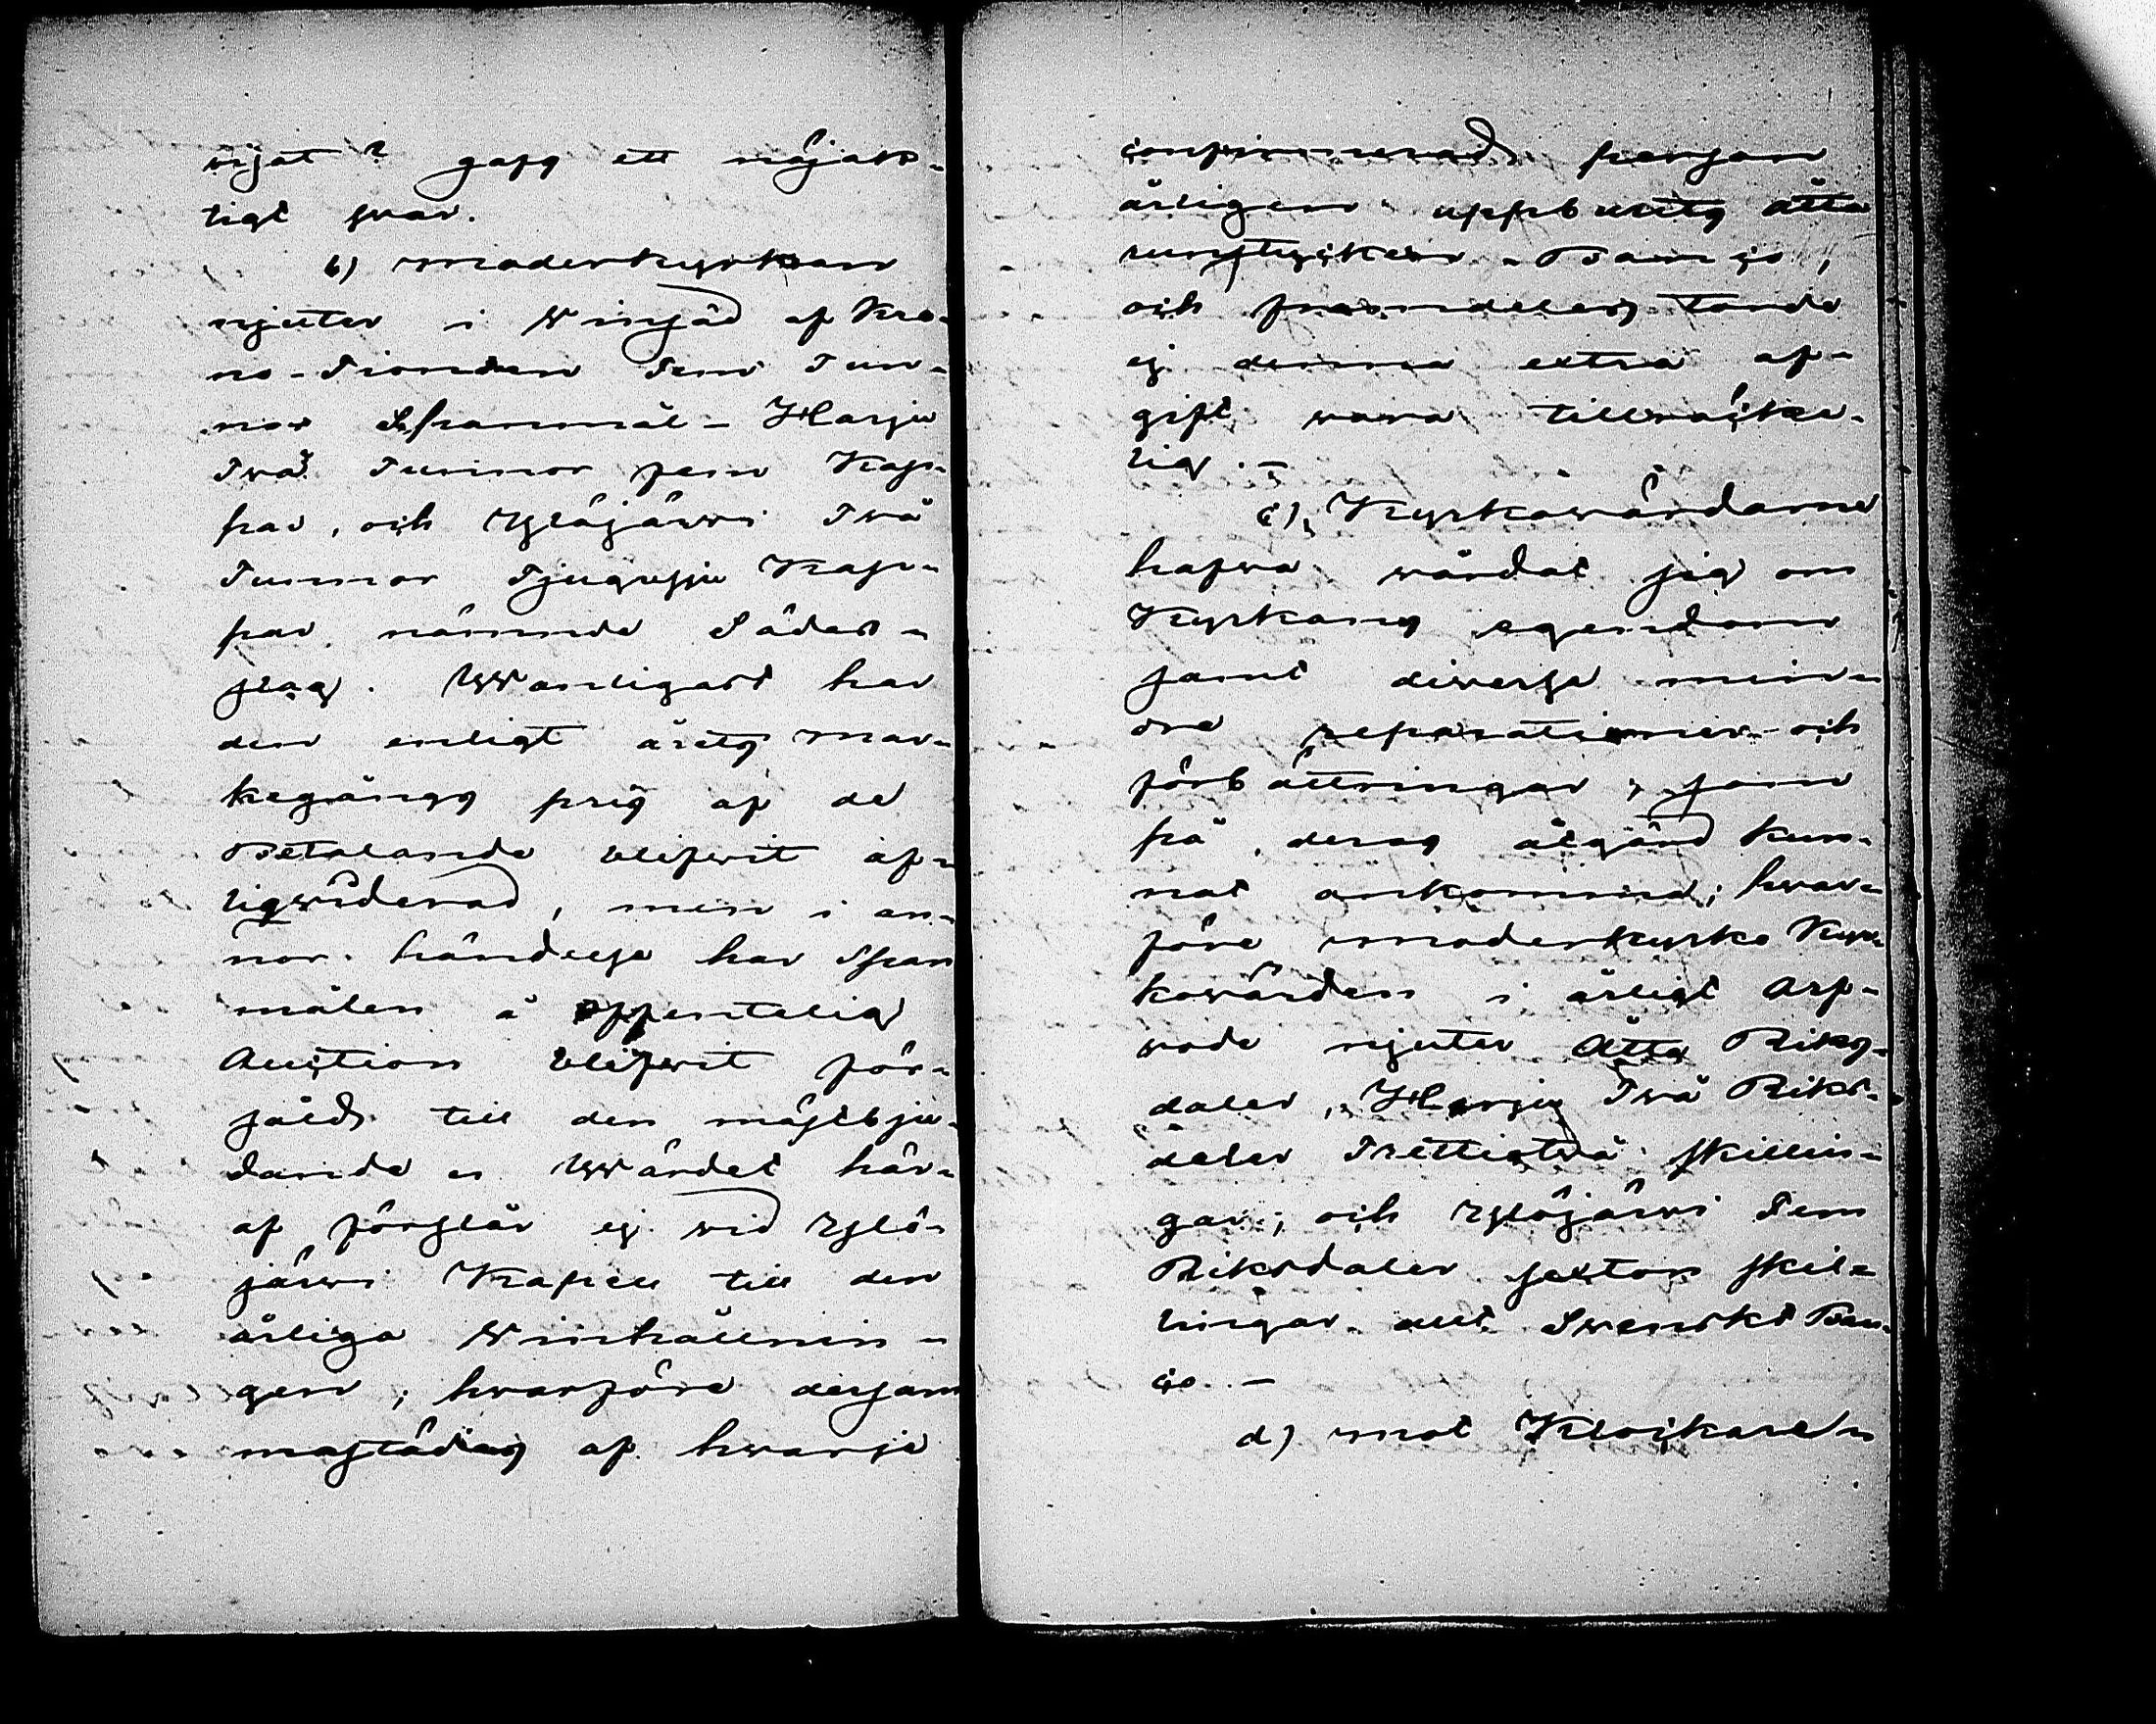 wisat? gafs ett nöjak-
tigt swar.
b) Moderkyrkan
njuter i Winsäd af Kro-
no-Tionden Fem Tun-
nor Spanmål - Harju
Twå Tunnor fem Kap-
par, och Ylöjärwi Twå
Tunnor Tjugusju Kap-
par nämnde Sädes-
slag. Wanligast har
den enligt årets Mar-
kegångs pris af de
Betalande blifwit af-
liqwiderad, men i an-
nor händelse har Span
målen å offentelig
Auction blifwit för-
såld till den mästbju-
dande. Wärdet här-
af förslår ej wid Ylö-
järwi Kapell till den
årliga Winhållnin-
gen, hwarföre dessam
mastädes af hwarje
confirmerad person
årligen uppburits åtta
runstycken Banco,
och framdeles torde
ej denna extra af-
gift wara tillräcke-
lig. -
c), Kyrkowärdarne
hafwa wårdat sig om
Kyrkans egendom
samt diverse min-
dre reparationer och
förbättringar, som
på deras åtgärd kun-
nat ankomma; hwar-
före Moderkyrko Kyr-
kowärden i årligt Arf-
wode njuter Åtta Riks-
daler, Harju Twå Riks-
daler Trettiotwå skillin-
gar; och Ylöjärwi Fem
Riksdaler sexton skil-
lingar allt Swenskt Ban-
co. -
d) Mot Klockaren